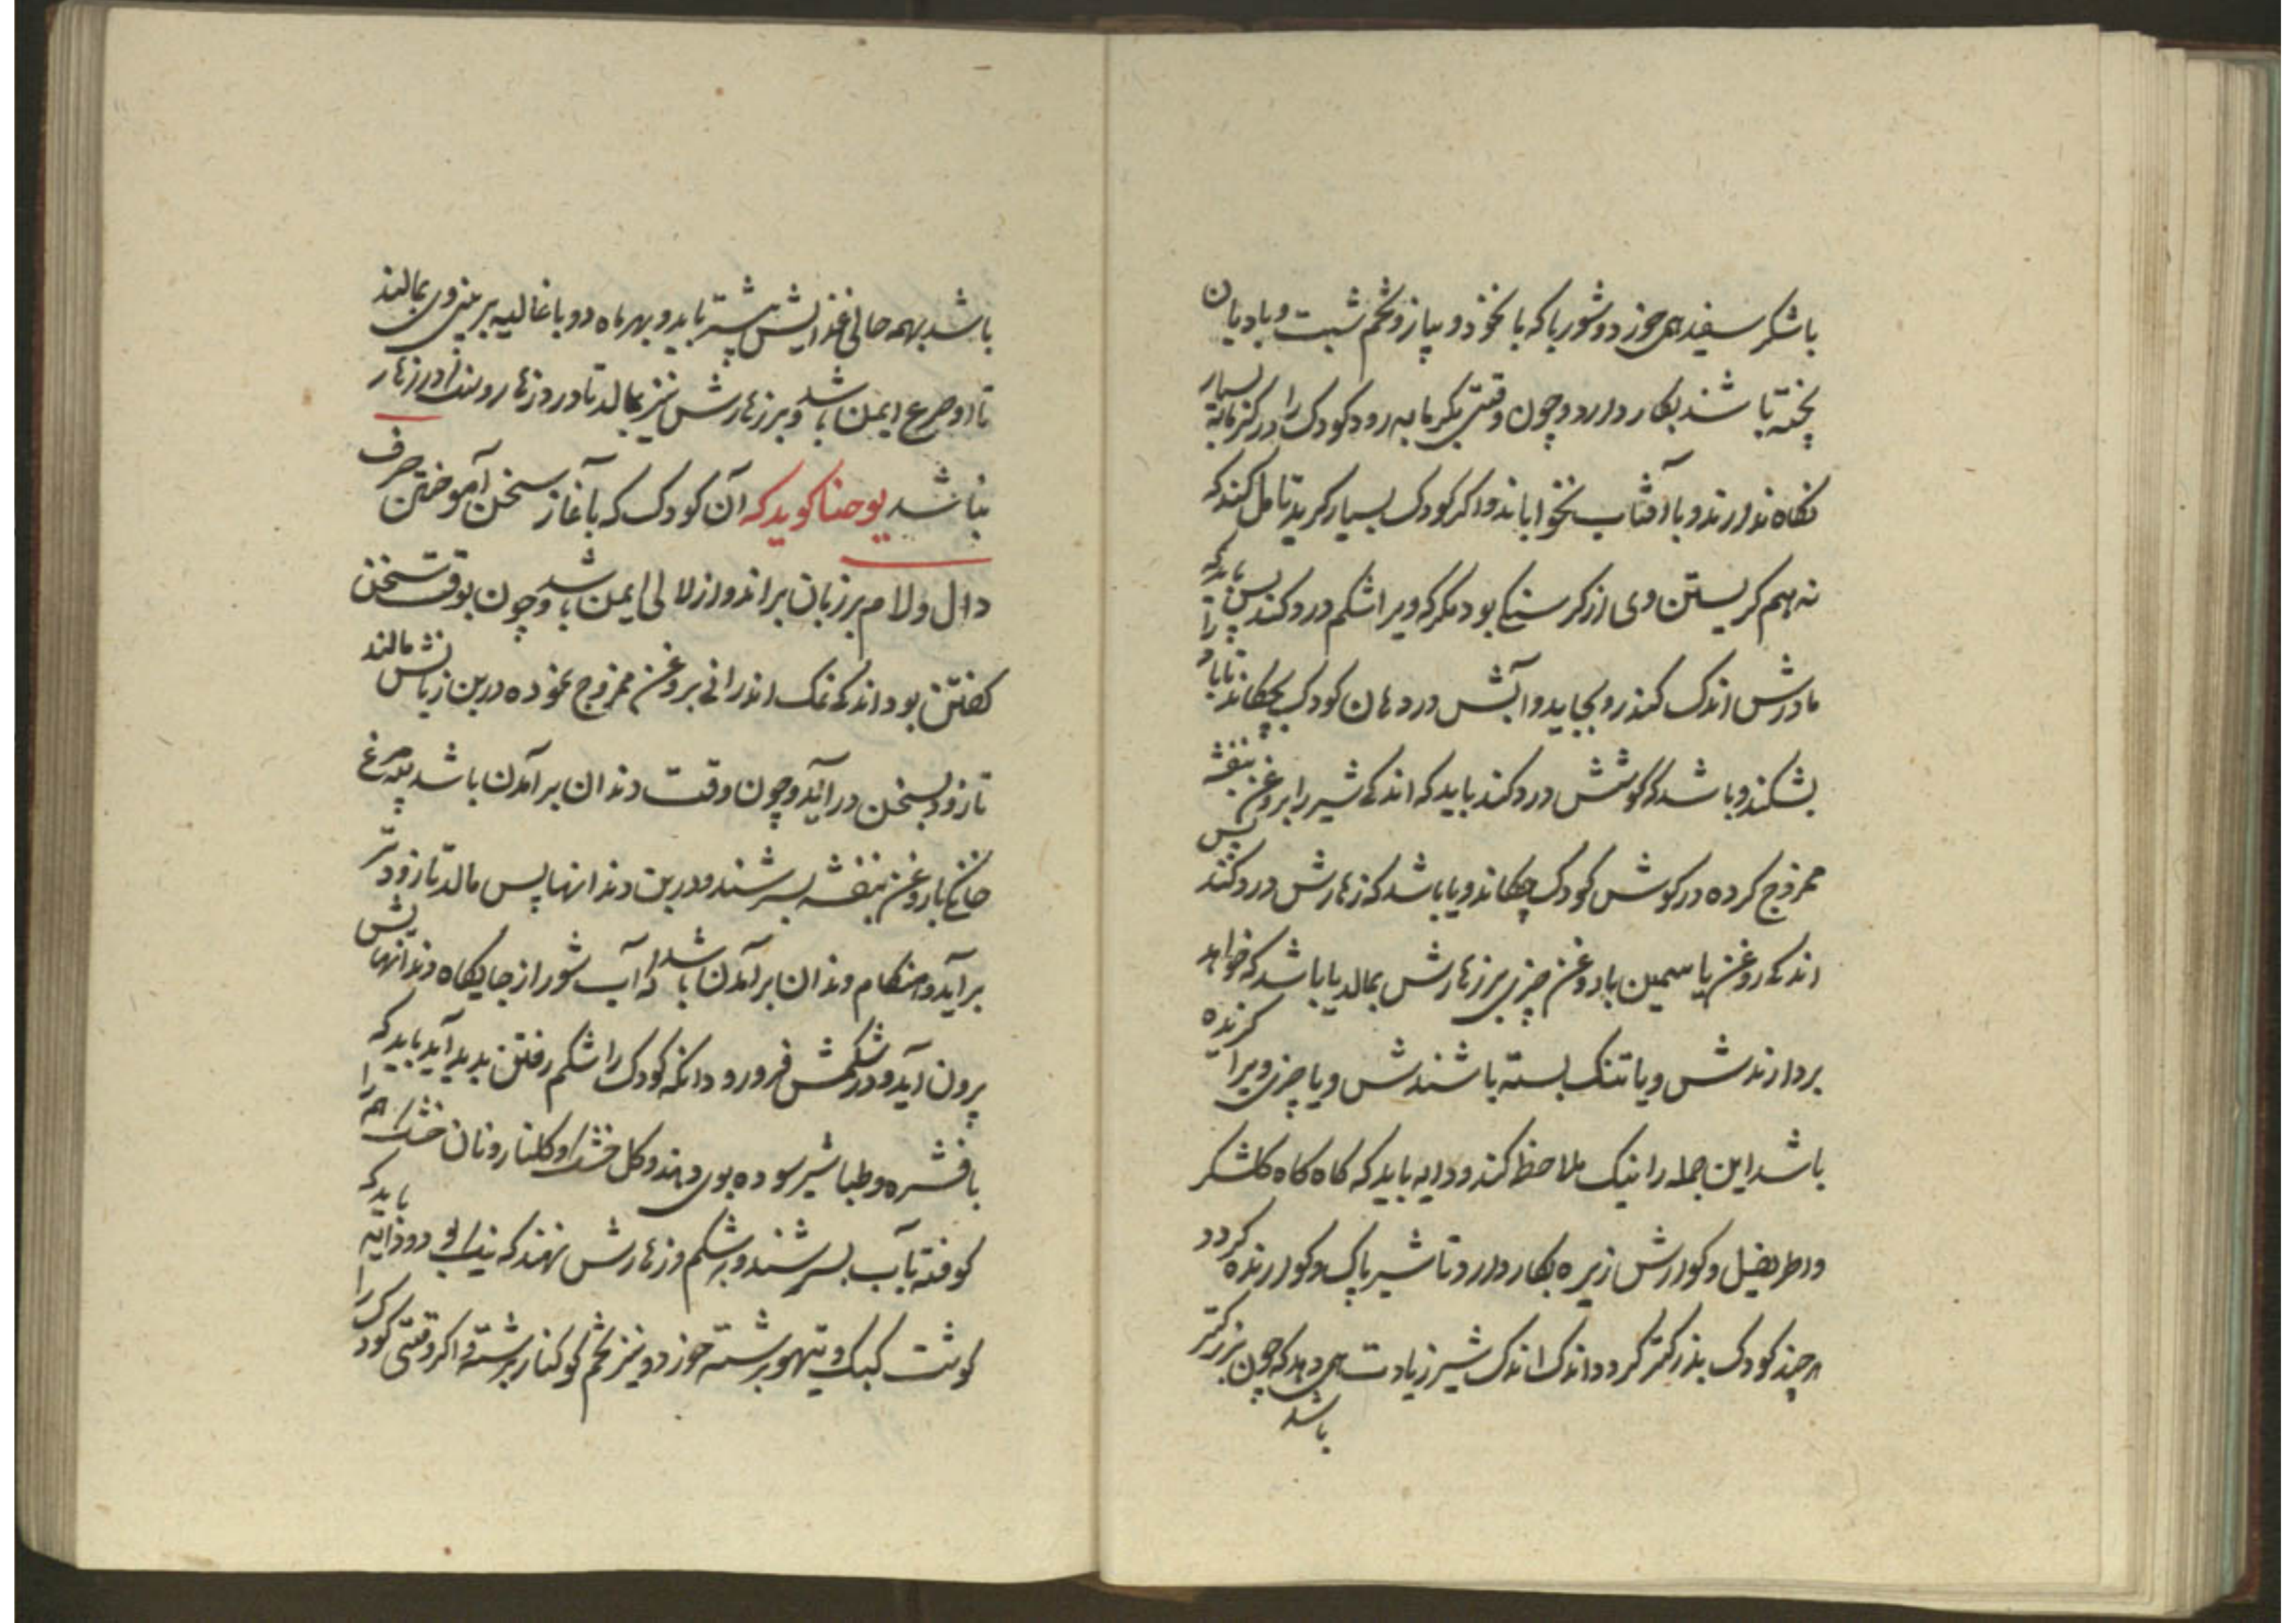 باشکر سفید همی خورد و شورباکه با نخود و پیاز و تخم شبت و بادیان
پخته باشند بکار دارد و چون وقتی بکرمابه رود کودک را در کرمابه بسیار
نکاه ندارند و با آفتاب نخواباند و اکر کودک بسیار کرید تامل کند که
نه همه کریستن وی از کرسنکی بود مکر که ویرا شکم درد کند پس باید که
مادرش اندک کندر و بجاید و آبش در دهان کودک چکاند تا باد را
بشکند و باشد که کوشش درد کند باید که اندکی شیر را بروغن بنفشه
ممزوج کرده در کوش کودک چکاند و یا باشد که زهارش درد کند پس
اندکی روغن یاسمین یا روغن خیری بر زهارش بمالد یا باشد که خواهد
بردارندش و یا تنک بسته باشندش و یا چیزی ویرا کزنده
باشد این جمله را نیک ملاحظ کند و دایه باید که کاه کاه کلشکر
واطریفل و کوارش زیره بکار دارد تا شیر پاک و کوارنده کردد
هرچند کودک بزرکتر کردد اندک اندک شیر زیادت همی دهد که چون بزرکتر
باشد
باشد بهمه حالی غذایش بیشتر باید و بهر ماه دو بار غالیه بر بینی وی بمالند
تا از صرع ایمن باشد و بر زهارش نیز بمالد تا در روزها روسند در زهار
نباشد یوحنا کوید که آن کودک که بآغاز سخن آموختن حرف
دال و لام بر زبان براند از لالی ایمن باشد و چون بوقت سخن
کفتن بود اندکی نمک اندرانی بروغن ممزوج نموده در بن زبانش مالند
تا زود بسخن درآید و چون وقت دندان برآمدن باشد پیه مرغ
خانکی با روغن بنفشه بسرشند و در بن دندانها پس مالد تا زودتر
برآید و هنکام دندان برآمدن باشد که آب شور از جایکاه دندانهایش
بیرون آید و در شکمش فرو رود و انکه کودک را شکم رفتن پدید آید باید که
با فشره و طباشیر سوده بوی دهند و کل خشک و کلنار و نان خشک هم را
کوفته بآب بسرشند و بر شکم و زهارش نهند که نیک بود و دایه باید که
کوشت کبک و تیهو برشته خورد و نیز تخم کوکنار برشته و اکر وقتی کودک را